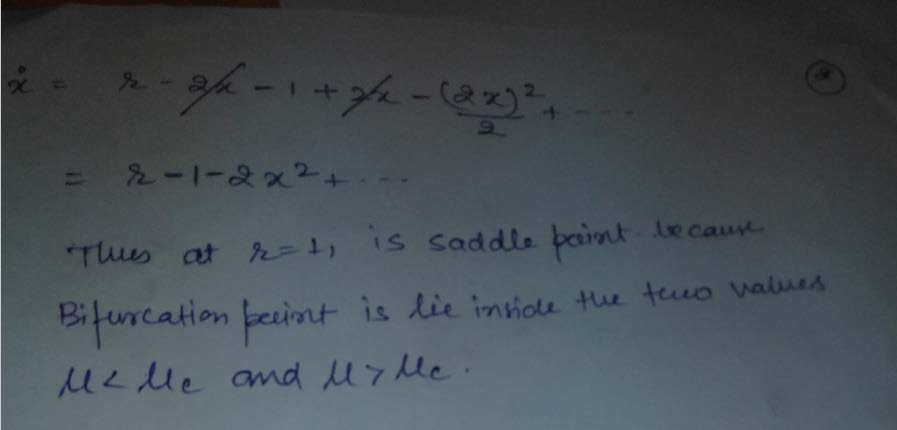 ẋ = r - 2x - 1 + 2x - (2x)²/2 + ....
= r - 1 - 2x² + ...
Thus at r=1, is saddle point because
Bifurcation point is lie inside the two values
μ < μc and μ > μc.